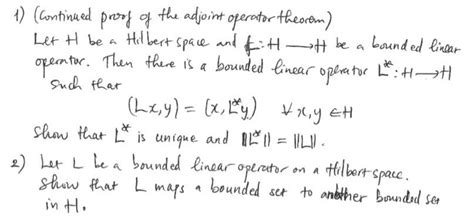 1) (Continued proof of the adjoint operator theorem)
Let H be a Hilbert space and L: H → H be a bounded linear
operator. Then there is a bounded linear operator L*: H → H
such that
(Lx, y) = (x, L*y) ∀ x, y ∈ H
Show that L* is unique and ||L*|| = ||L||.
2) Let L be a bounded linear operator on a Hilbert space.
Show that L maps a bounded set to another bounded set
in H.